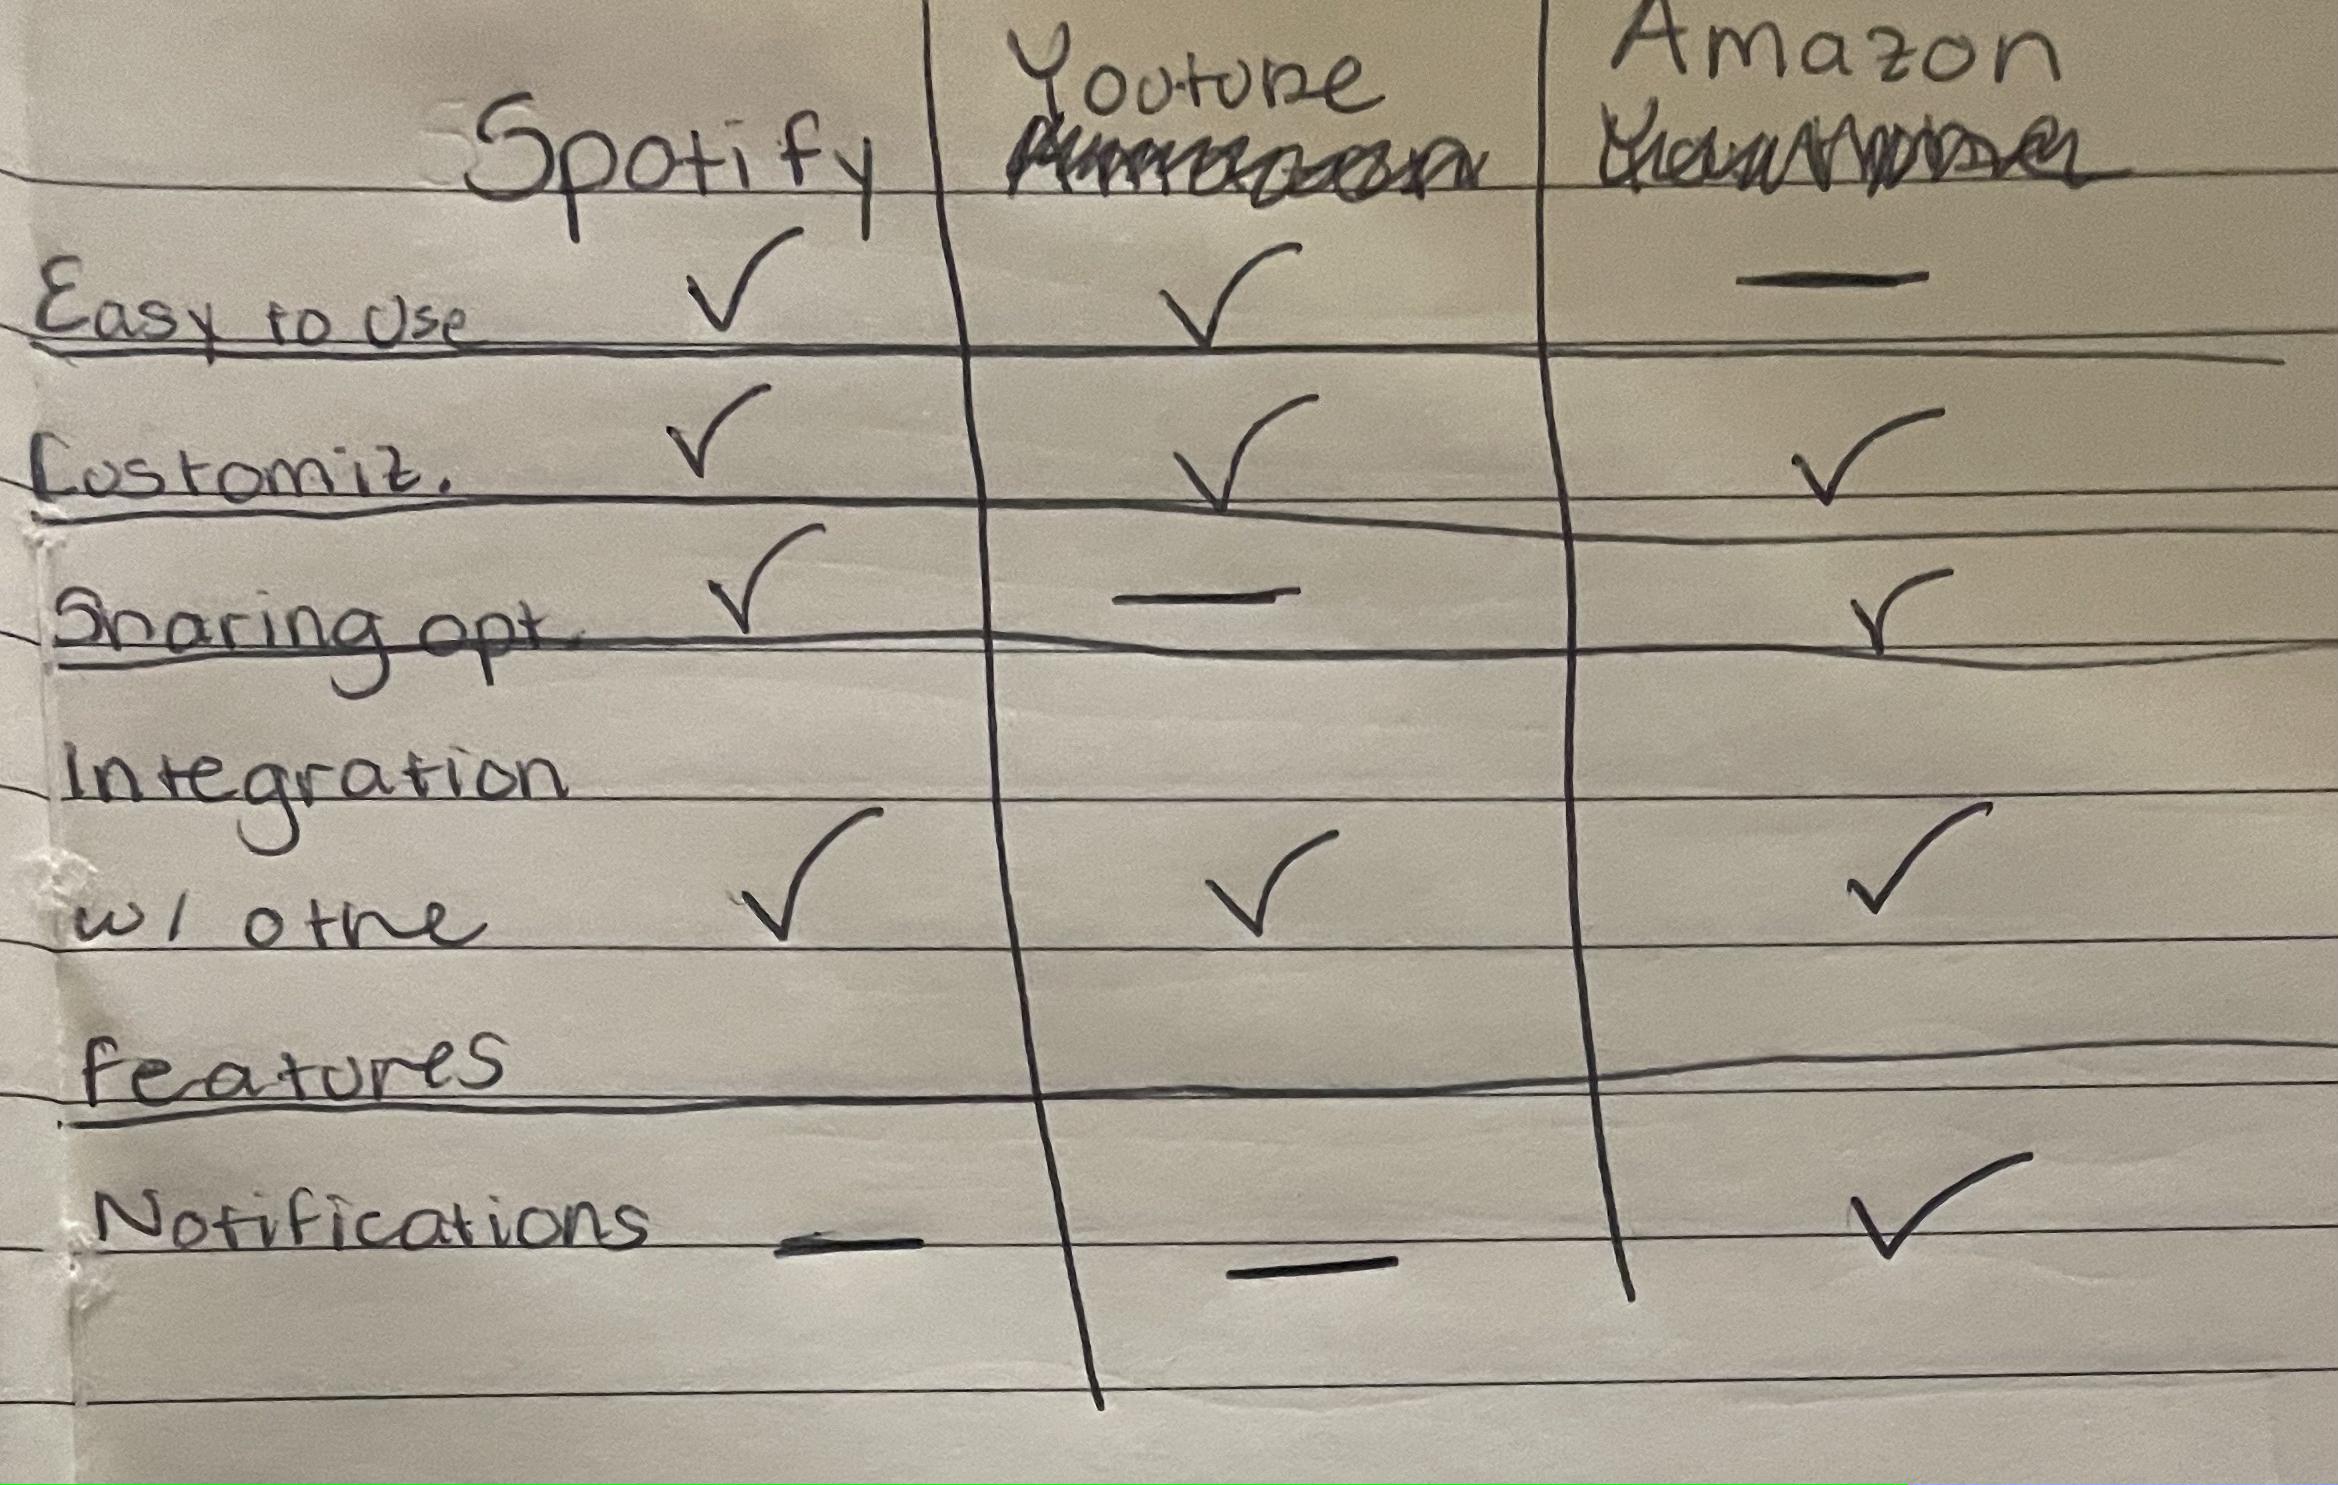 Spotify Youtube Amazon
Easy to Use ✓ ✓ —
Customiz. ✓ ✓ ✓
Sharing opt. ✓ — ✓
Integration
w/ othe ✓ ✓ ✓
features
Notifications — — ✓